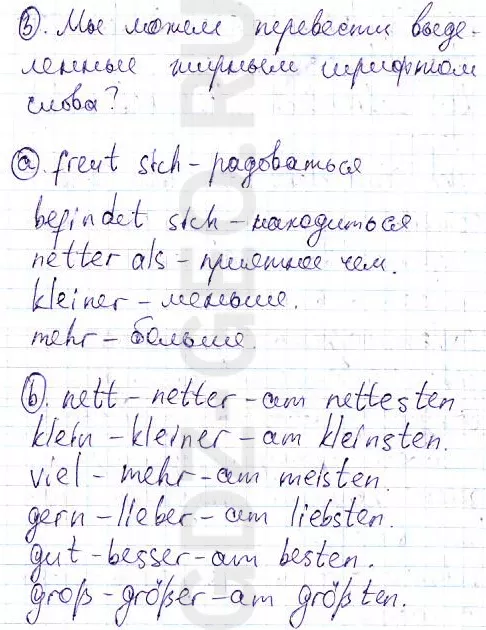 3. Мы можем перевести выде-
ленные жирным шрифтом
слова?
a. freut sich – радоваться
befindet sich – находиться
netter als – приятнее чем.
kleiner – меньше.
mehr – больше.
b. nett – netter – am nettesten.
klein – kleiner – am kleinsten.
viel – mehr – am meisten.
gern – lieber – am liebsten.
gut – besser – am besten.
groß – größer – am größten.
GDZ-GEO.RU